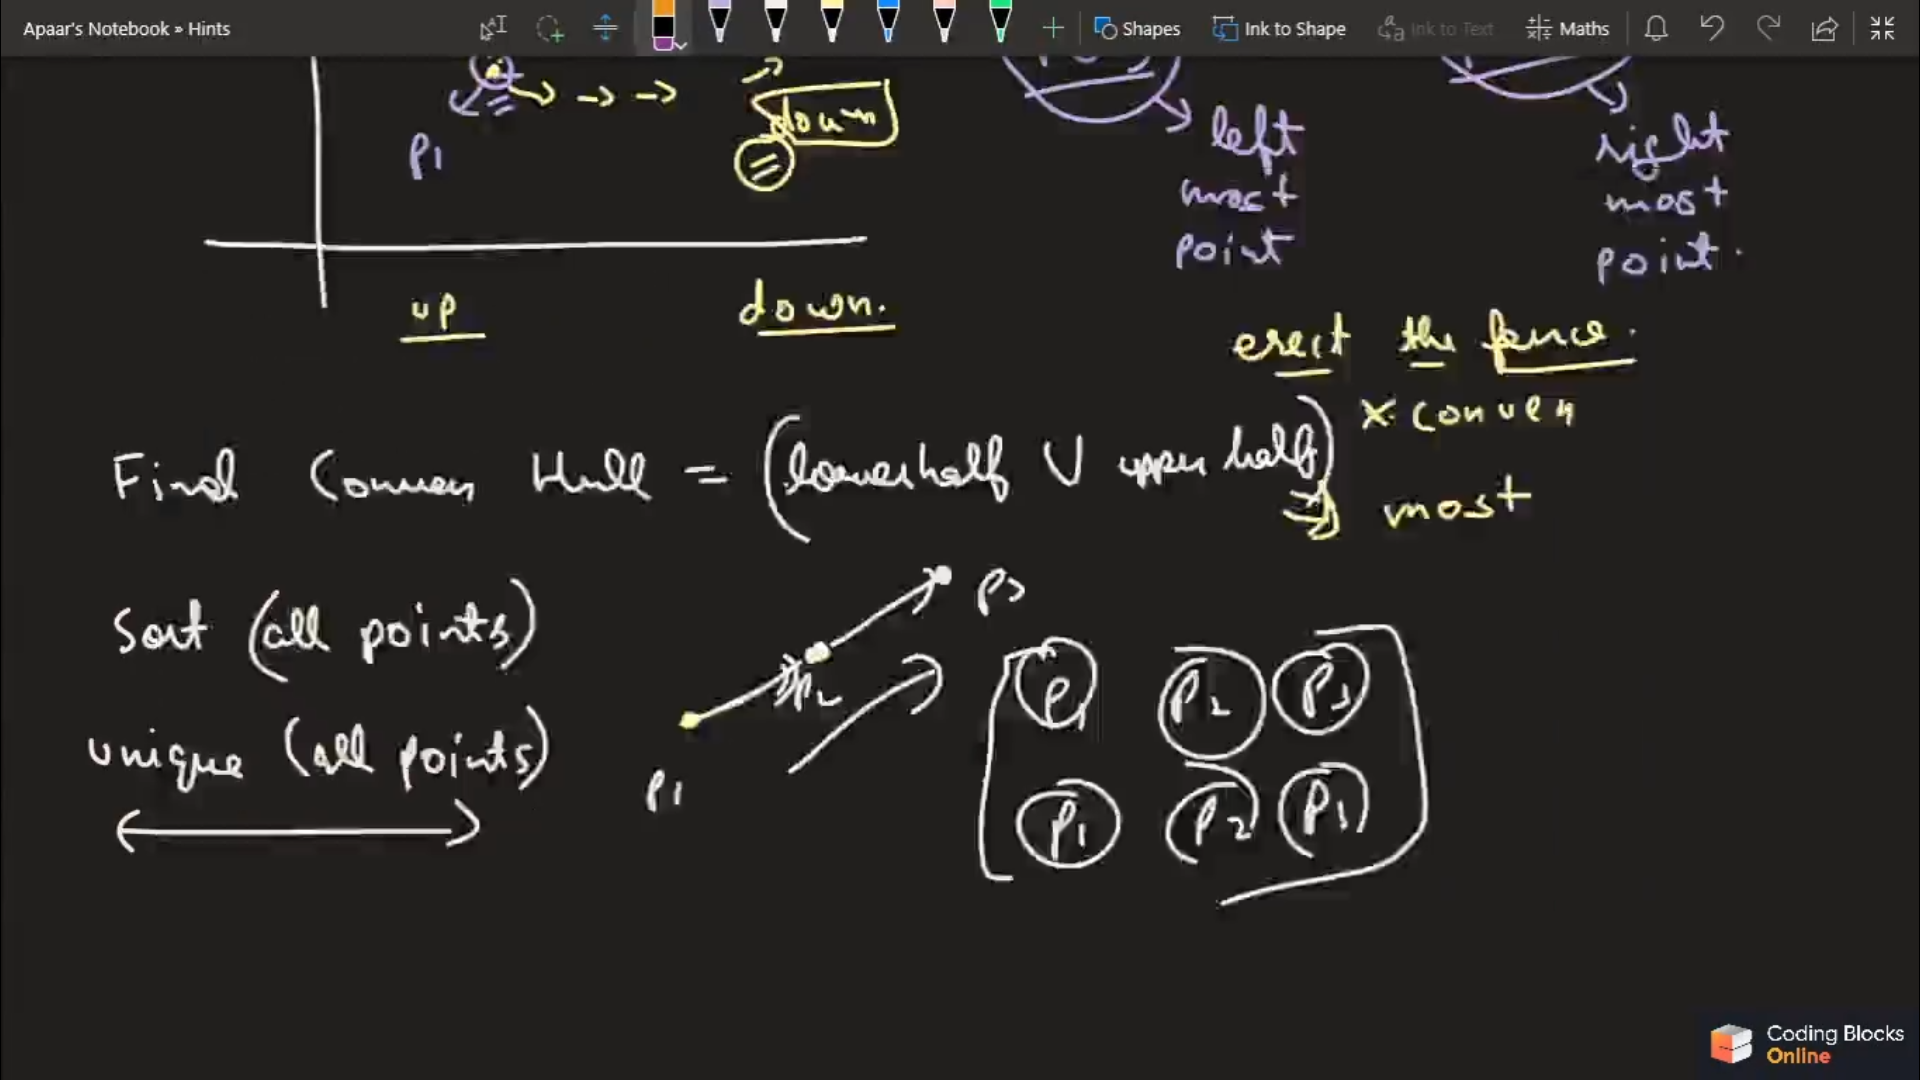 Apaar's Notebook » Hints
Shapes
Ink to Shape
Ink to Text
Maths
down
P1
left
most
point
right
most
point.
up
down.
erect the fence.
x convex
Find Convex Hull = (lowerhalf U upper half)
→ most
Sort (all points)
P3
P2
P1 P2 P3
unique (all points)
P1
P1 P2 P1
Coding Blocks
Online